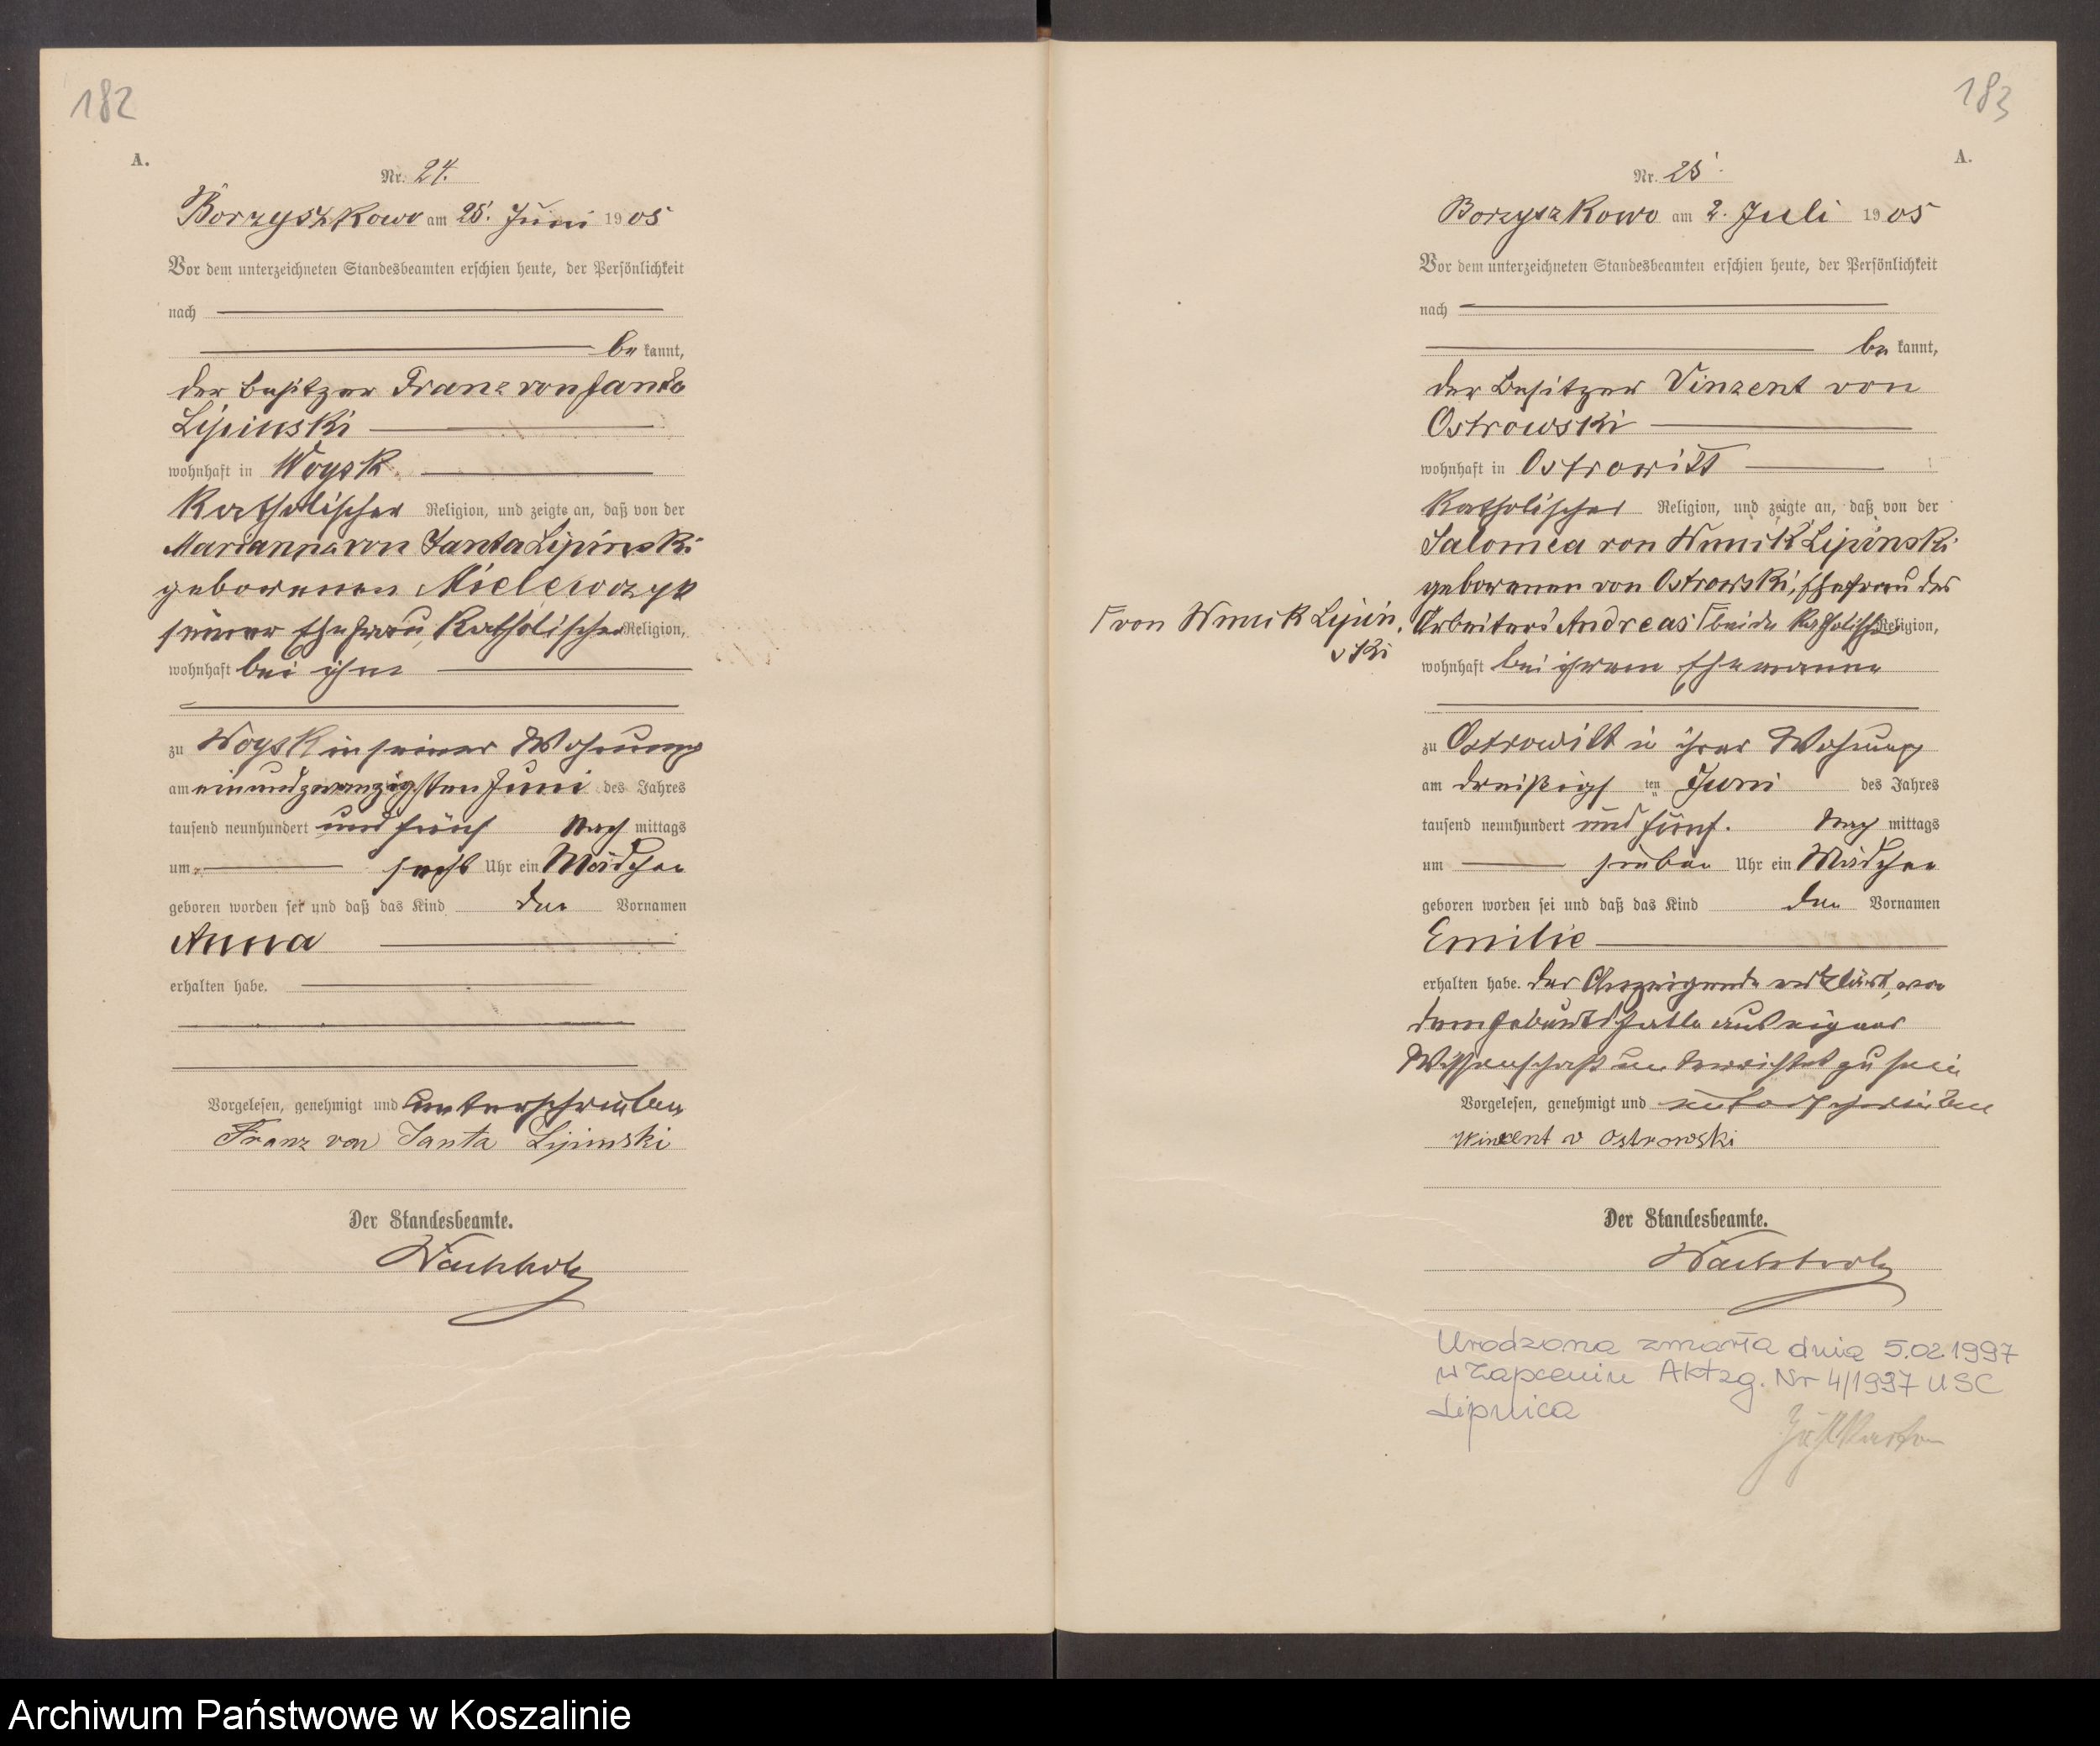 182
A.
Nr. 24.
Borzyszkowo am 25. Juni 1905
Vor dem unterzeichneten Standesbeamten erschien heute, der Persönlichkeit
nach
bekannt,
der Besitzer Franz von Janta
Lipinski
wohnhaft in Woysk
katholischer Religion, und zeigte an, daß von der
Marianna von Janta Lipinski
geborenen Mielewczyk
seiner Ehefrau, katholischer Religion,
wohnhaft bei ihm
zu Woysk in seiner Wohnung
am einundzwanzigsten Juni des Jahres
tausend neunhundert und fünf Nachmittags
um sechs Uhr ein Mädchen
geboren worden sei und daß das Kind den Vornamen
Anna
erhalten habe.
Vorgelesen, genehmigt und unterschrieben
Franz von Janta Lipinski
Der Standesbeamte.
Wachholz
183
A.
Nr. 25.
Borzyszkowo am 2. Juli 1905
Vor dem unterzeichneten Standesbeamten erschien heute, der Persönlichkeit
nach
bekannt,
der Besitzer Vinzent von
Ostrowski
wohnhaft in Ostrowitt
katholischer Religion, und zeigte an, daß von der
Salomea von Wnuk Lipinski
geborenen von Ostrowski, Ehefrau des
Arbeiters Andreas Γ beide katholischer Religion,
Γ von Wnuck Lipin.
ski
wohnhaft bei ihrem Ehemanne
zu Ostrowitt in ihrer Wohnung
am dreißigsten Juni des Jahres
tausend neunhundert und fünf. Nachmittags
um sieben Uhr ein Mädchen
geboren worden sei und daß das Kind den Vornamen
Emilie
erhalten habe. Der Anzeigende erklärt, von
dem Geburtsfalle aus eigner
Wissenschaft unterrichtet zu sein
Vorgelesen, genehmigt und unterschrieben
Wincent v Ostrowski
Der Standesbeamte.
Wachholz
Urodzona zmarła dnia 5.02.1997
w Zapceniu Akt zg. Nr 4/1997 USC
Lipnica
Archiwum Państwowe w Koszalinie